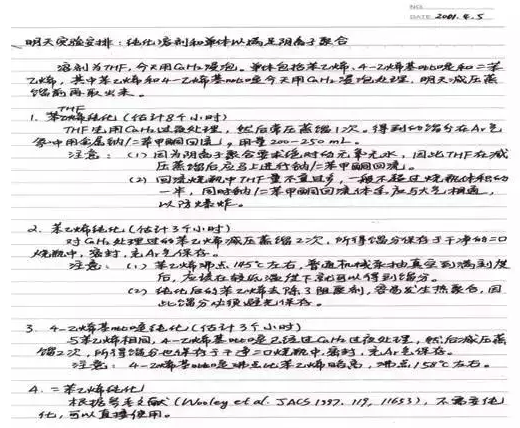 NO.
DATE 2001.4.5
明天实验安排：纯化溶剂和单体以满足阴离子聚合
溶剂为THF，今天用CaH₂浸泡。单体包括苯乙烯、4-乙烯基吡啶和二苯
乙烯，其中苯乙烯和4-乙烯基吡啶今天用CaH₂浸泡处理，明天减压蒸
馏前再取出来。
1. THF纯化（估计8个小时）
THF先用CaH₂过夜处理，然后常压蒸馏1次。得到的馏分在Ar气
氛中用金属钠/二苯甲酮回流，用量200-250 mL。
注意：(1) 因为阴离子聚合要求绝对的无氧无水，因此THF在减
压蒸馏后应马上进行钠/二苯甲酮回流。
(2) 回流烧瓶中THF量不宜过多，一般不超过烧瓶体积的
一半，同时钠/二苯甲酮回流体系应与大气相通，
以防爆炸。
2. 苯乙烯纯化（估计3个小时）
对CaH₂处理过的苯乙烯减压蒸馏2次，所得馏分保存于干净的二口
烧瓶中，密封，充Ar气保存。
注意：(1) 苯乙烯沸点145℃左右，普通机械泵抽真空到满刻度
后，应该在较低温度下就可以得到馏分。
(2) 纯化后的苯乙烯去除了阻聚剂，容易发生热聚合，因
此馏分必须避光保存。
3. 4-乙烯基吡啶纯化（估计3个小时）
与苯乙烯相同，4-乙烯基吡啶已经过CaH₂过夜处理，然后减压蒸
馏2次，所得馏分也保存于干净二口烧瓶中，密封，充Ar气保存。
注意：4-乙烯基吡啶沸点比苯乙烯略高，沸点158℃左右。
4. 二苯乙烯纯化
根据参考文献（Wooley et al. JACS 1997, 119, 11653），不需要纯
化，可以直接使用。